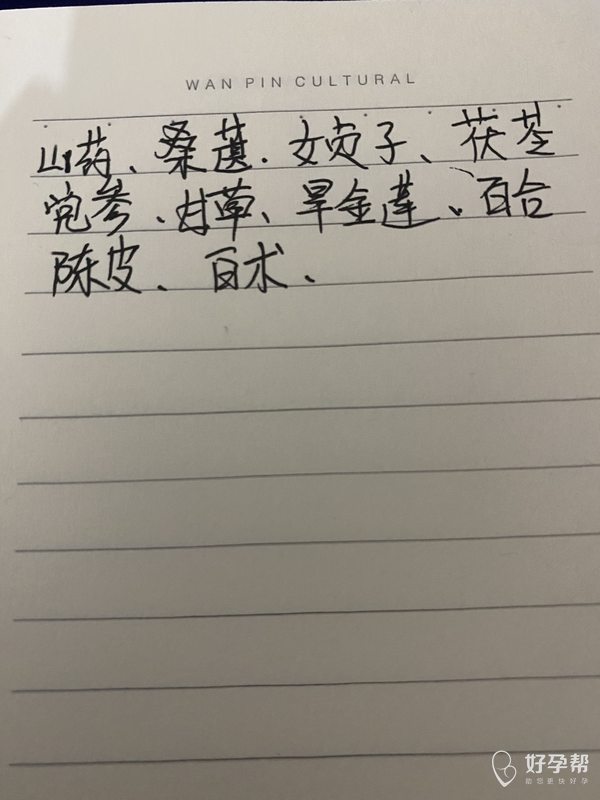 WAN PIN CULTURAL
山药、桑葚.女贞子、茯苓
党参、甘草、旱金莲、百合
陈皮、百术、
好孕帮
助您更快好孕